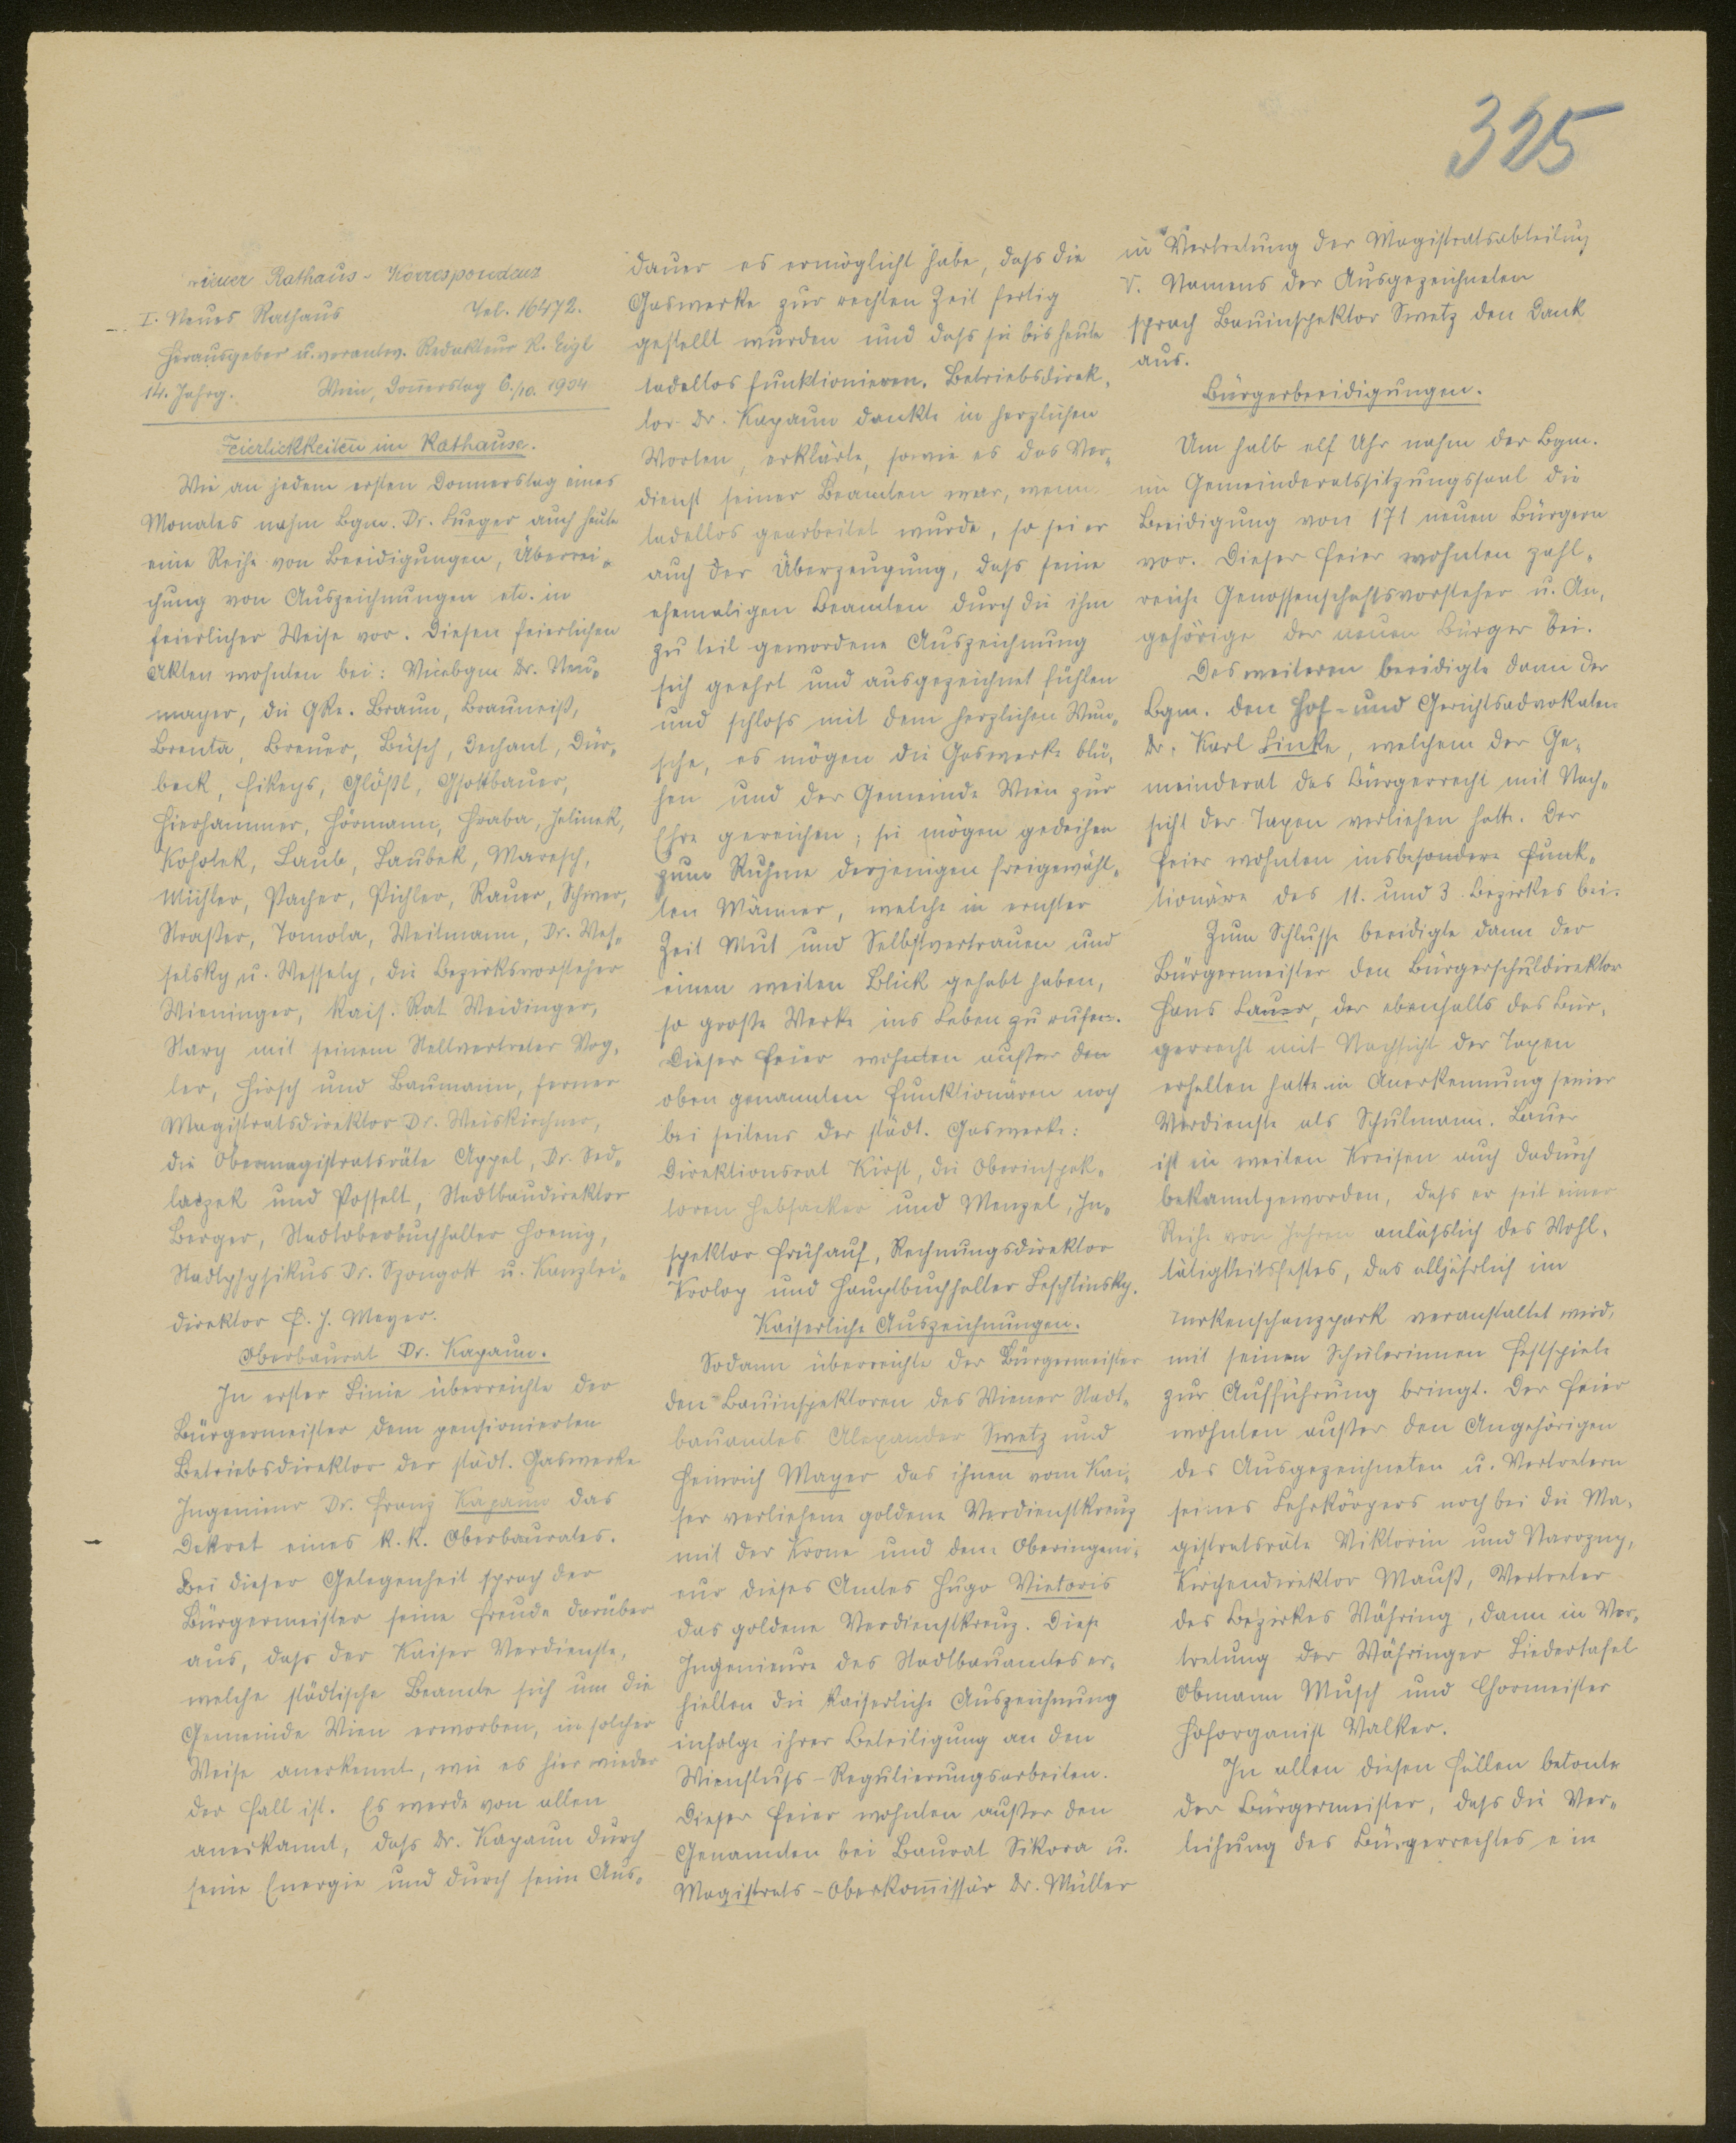 325
Wiener Rathaus-Korrespondenz
I. Neues Rathaus Tel. 16472.
Herausgeber u. verantw. Redakteur R. Eigl
14. Jahrg. Wien, Donnerstag 6./10. 1904
Feierlichkeiten im Rathause.
Wie an jedem ersten Donnerstag eines
Monates nahm Bgm. Dr. Lueger auch heute
eine Reihe von Beeidigungen, Überrei-
chung von Auszeichnungen etc. in
feierlicher Weise vor. Diesen feierlichen
Akten wohnten bei: Vicebgm Dr. Neu-
mayer, die GRe. Braun, Brauneiß,
Brenta, Breuer, Büsch, Dechant, Dür-
beck, Fikeys, Glößl, Gsottbauer,
Hierhammer, Hörmann, Hraba, Jelinek,
Koholek, Laub, Laubek, Maresch,
Michler, Pacher, Pichler, Rauer, Schwer,
Straßer, Tomola, Weitmann, Dr. Wes-
selsky u. Wessely, die Bezirksvorsteher
Wieninger, kais. Rat Weidinger,
Stary mit seinem Stellvertreter Vog-
ler, Hirsch und Baumann, ferner
Magistratsdirektor Dr. Weiskirchner,
die Obermagistratsräte Appel, Dr. Sed-
laczek und Posselt, Stadtbaudirektor
Berger, Stadtoberbuchhalter Hoenig,
Stadtphysikus Dr. Szongott u. Kanzlei-
direktor F. J. Meyer.
Oberbaurat Dr. Kapaun.
In erster Linie überreichte der
Bürgermeister dem pensionierten
Betriebsdirektor der städt. Gaswerke
Ingenieur Dr. Franz Kapaun das
Dekret eines k.k. Oberbaurates.
Bei dieser Gelegenheit sprach der
Bürgermeister seine Freude darüber
aus, dass der Kaiser Verdienste,
welche städtische Beamte sich um die
Gemeinde Wien erworben, in solcher
Weise anerkennt, wie es hier wieder
der Fall ist. Es werde von allen
anerkannt, dass Dr. Kapaun durch
seine Energie und durch seine Aus-
dauer es ermöglicht habe, dass die
Gaswerke zur rechten Zeit fertig
gestellt wurden und dass sie bis heute
tadellos funktionieren. Betriebsdirek-
tor Dr. Kapaun dankte in herzlichen
Worten, erklärte, sowie es das Ver-
dienst seiner Beamten war, wenn
tadellos gearbeitet wurde, so sei er
auch der Überzeugung, dass seine
ehemaligen Beamten durch die ihm
zu teil gewordene Auszeichnung
sich geehrt und ausgezeichnet fühlen
und schloss mit dem herzlichen Wun-
sche, es mögen die Gaswerke blü-
hen und der Gemeinde Wien zur
Ehre gereichen; sie mögen gedeihen
zum Ruhme derjenigen freigewähl-
ten Männer, welche in ernster
Zeit Mut und Selbstvertrauen und
einen weiten Blick gehabt haben,
so große Werke ins Leben zu rufen.
Dieser Feier wohnten außer den
oben genannten Funktionären noch
bei seitens der städt. Gaswerke:
Direktionsrat Kirst, die Oberinspek-
toren Habsacker und Menzel, In-
spektor Frühauf, Rechnungsdirektor
Krolop und Hauptbuchhalter Leschtinsky.
Kaiserliche Auszeichnungen.
Sodann überreichte der Bürgermeister
den Bauinspektoren des Wiener Stadt-
bauamtes Alexander Swetz und
Heinrich Mayer das ihnen vom Kai-
ser verliehene goldene Verdienstkreuz
mit der Krone und dem Oberingeni-
eur dieses Amtes Hugo Vietoris
das goldene Verdienstkreuz. Diese
Ingenieure des Stadtbauamtes er-
hielten die kaiserliche Auszeichnung
infolge ihrer Beteiligung an den
Wienfluss-Regulierungsarbeiten.
Dieser Feier wohnten außer den
Genannten bei Baurat Sikora u.
Magistrats-Oberkommissär Dr. Müller
in Vertretung der Magistratsabteilung
V. Namens der Ausgezeichneten
sprach Bauinspektor Swetz den Dank
aus.
Bürgerbeeidigungen.
Um halb elf Uhr nahm der Bgm.
im Gemeinderatssitzungssaal die
Beeidigung von 171 neuen Bürgern
vor. Dieser Feier wohnten zahl-
reiche Genossenschaftsvorsteher u. An-
gehörige der neuen Bürger bei.
Des weiteren beeidigte dann der
Bgm. den Hof- und Gerichtsadvokaten
Dr. Karl Linke, welchem der Ge-
meinderat das Bürgerrecht mit Nach-
sicht der Taxen verliehen hatte. Der
Feier wohnten insbesondere Funk-
tionäre des 11. und 3. Bezirkes bei.
Zum Schlusse beeidigte dann der
Bürgermeister den Bürgerschuldirektor
Hans Lauer, der ebenfalls das Bür-
gerrecht mit Nachsicht der Taxen
erhalten hatte in Anerkennung seiner
Verdienste als Schulmann. Lauer
ist in weiten Kreisen auch dadurch
bekannt geworden, dass er seit einer
Reihe von Jahren anlässlich des Wohl-
tätigkeitsfestes, das alljährlich im
Türkenschanzpark veranstaltet wird,
mit seinen Schülerinnen Festspiele
zur Aufführung bringt. Der Feier
wohnten außer den Angehörigen
des Ausgezeichneten u. Vertretern
seines Lehrkörpers noch bei die Ma-
gistratsräte Viktorin und Nawozny,
Kirchendirektor Mauß, Vertreter
des Bezirkes Währing, dann in Ver-
tretung der Währinger Liedertafel
Obmann Musch und Chormeister
Hoforganist Valker.
In allen diesen Fällen betonte
der Bürgermeister, dass die Ver-
leihung des Bürgerrechtes ein